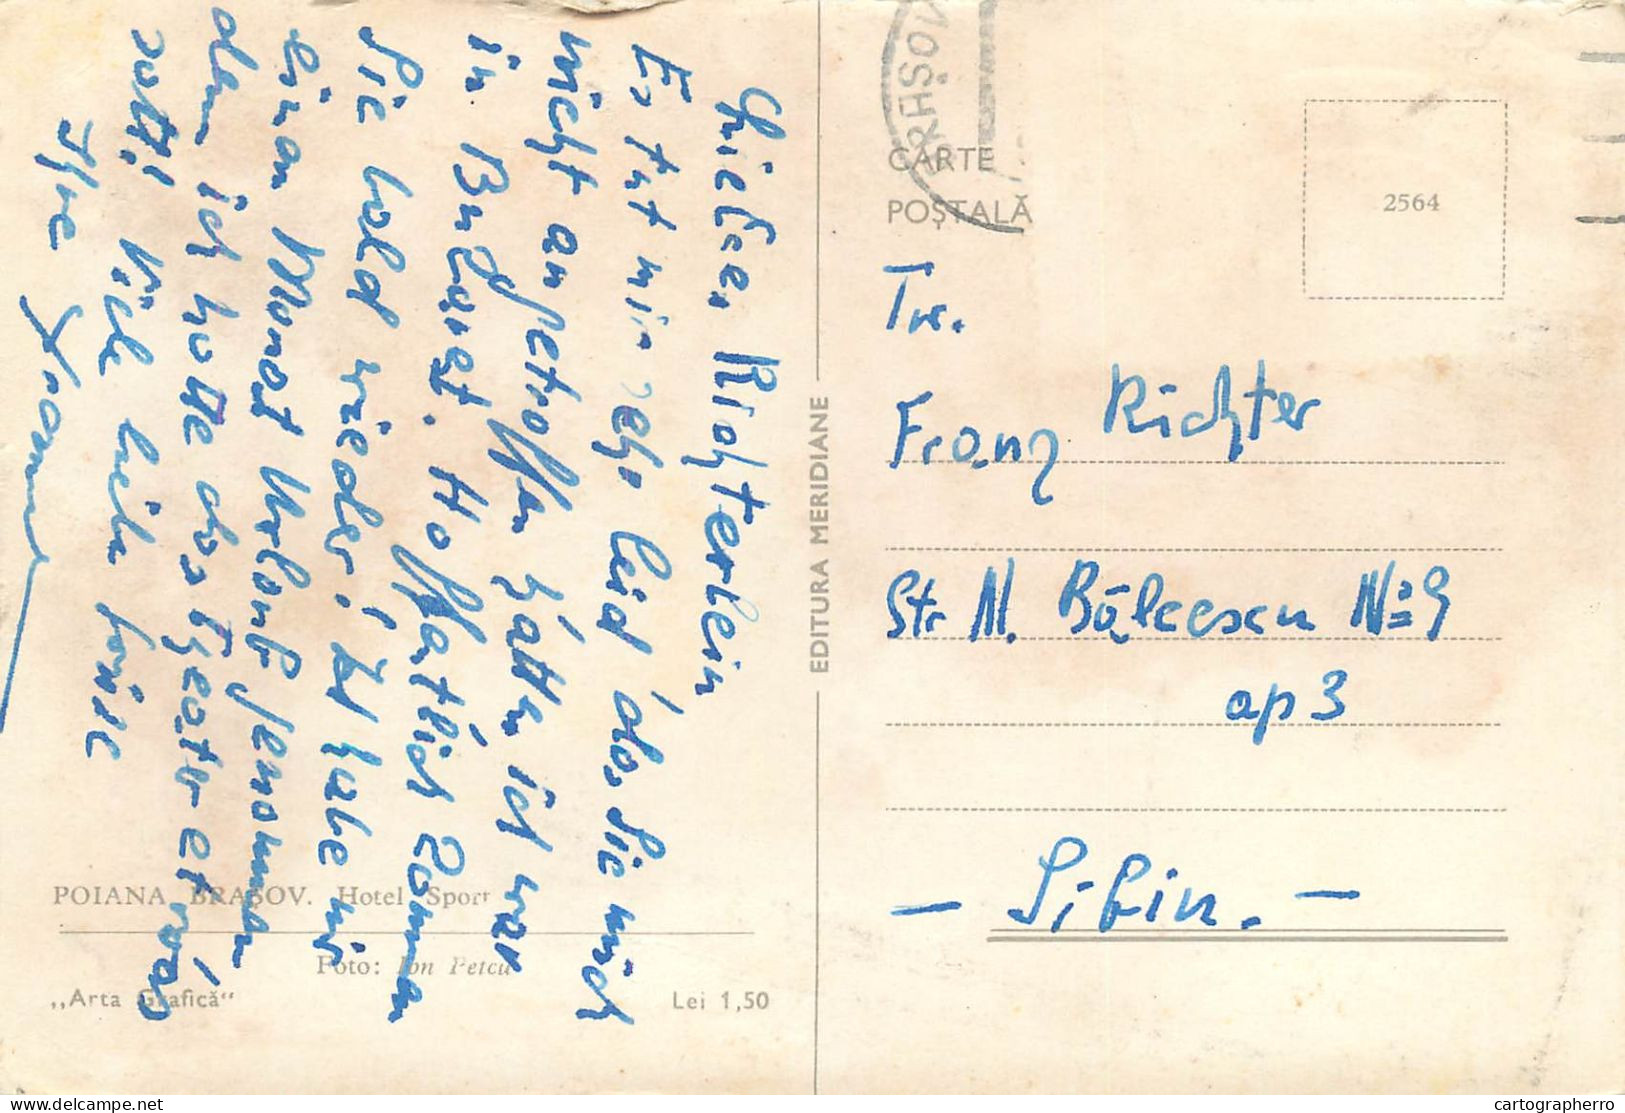 Lieber Richterlein
Es tut mir sehr leid das Sie mich
nicht angetroffen hatten ich war
in Bukarest. Hoffentlich
Sie bald wieder! Ich habe mir
einen Monat Urlaub genommen
denn ich hatte das Theater etwas
satt! Viele liebe Grüsse
Ihre
BRAȘOV
CARTE
POȘTALĂ
2564
Tov.
Franz Richter
Str N. Bălcescu No 9
ap 3
— Sibiu. —
EDITURA MERIDIANE
POIANA BRAȘOV. Hotel Sport
Foto: Ion Petcu
„Arta Grafică“
Lei 1,50
cartographerro